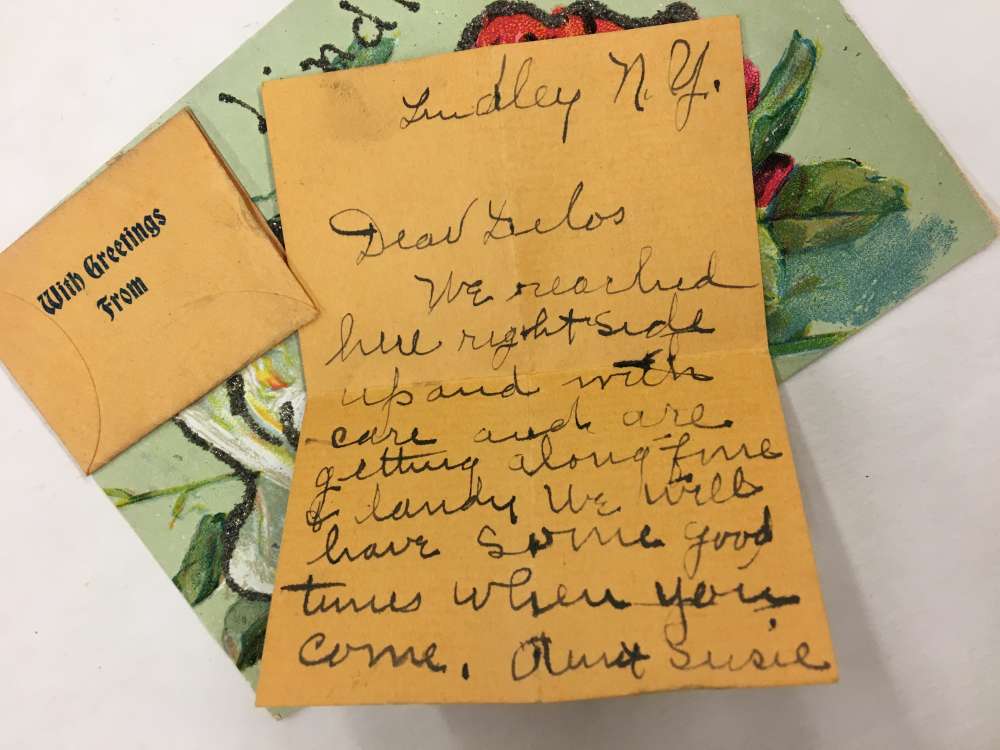 Kind
With Greetings
From
Lindley N.Y.
Dear Delos
We reached
here right side
up and with
care and are
getting along fine
& dandy We will
have some good
times when you
come. Aunt Susie